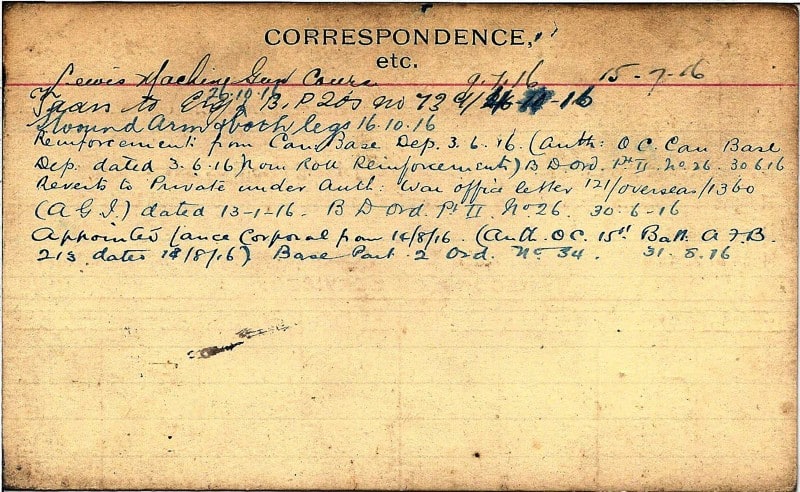 CORRESPONDENCE,
etc.
Lewis Machine Gun Course 9.7.16 15-7-16
26.10.16
Trans to Eng B.P 20s no 73 -16
Wound Arm & both legs 16.10.16
Reinforcement: from Can Base Dep. 3.6.16. (Auth: O.C. Can Base
Dep. dated 3.6.16) Nom Roll Reinforcements) B D Ord. Pt II. No. 26. 30 6 16
Reverts to Private under Auth: War office letter 121/overseas/1360
(A G I.) dated 13-1-16. B D Ord. Pt II No 26. 30-6-16
Appointed Lance Corporal from 14/8/16. (Auth. O.C. 15th Batt. A.F.B.
213. dated 14/8/16) Base Part. 2 Ord. No 34. 31.8.16